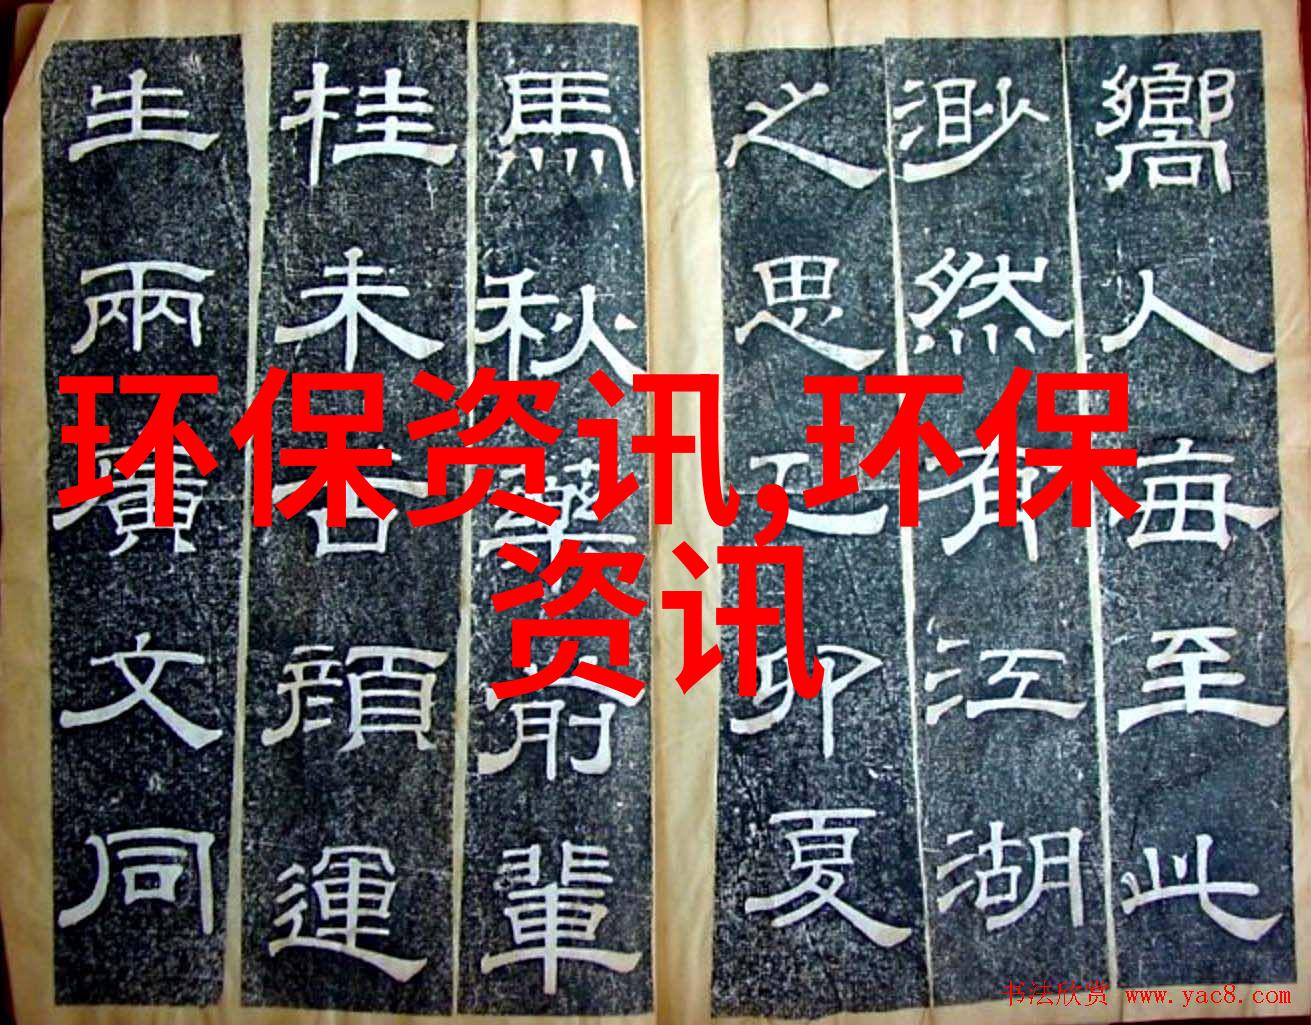 嚮人海至此
渺然有江湖
之思乙卯夏
馬秋藥前輩
桂未谷顏運
生兩廣文同
环保资讯,环保
资讯
书法欣赏 www.yac8.com